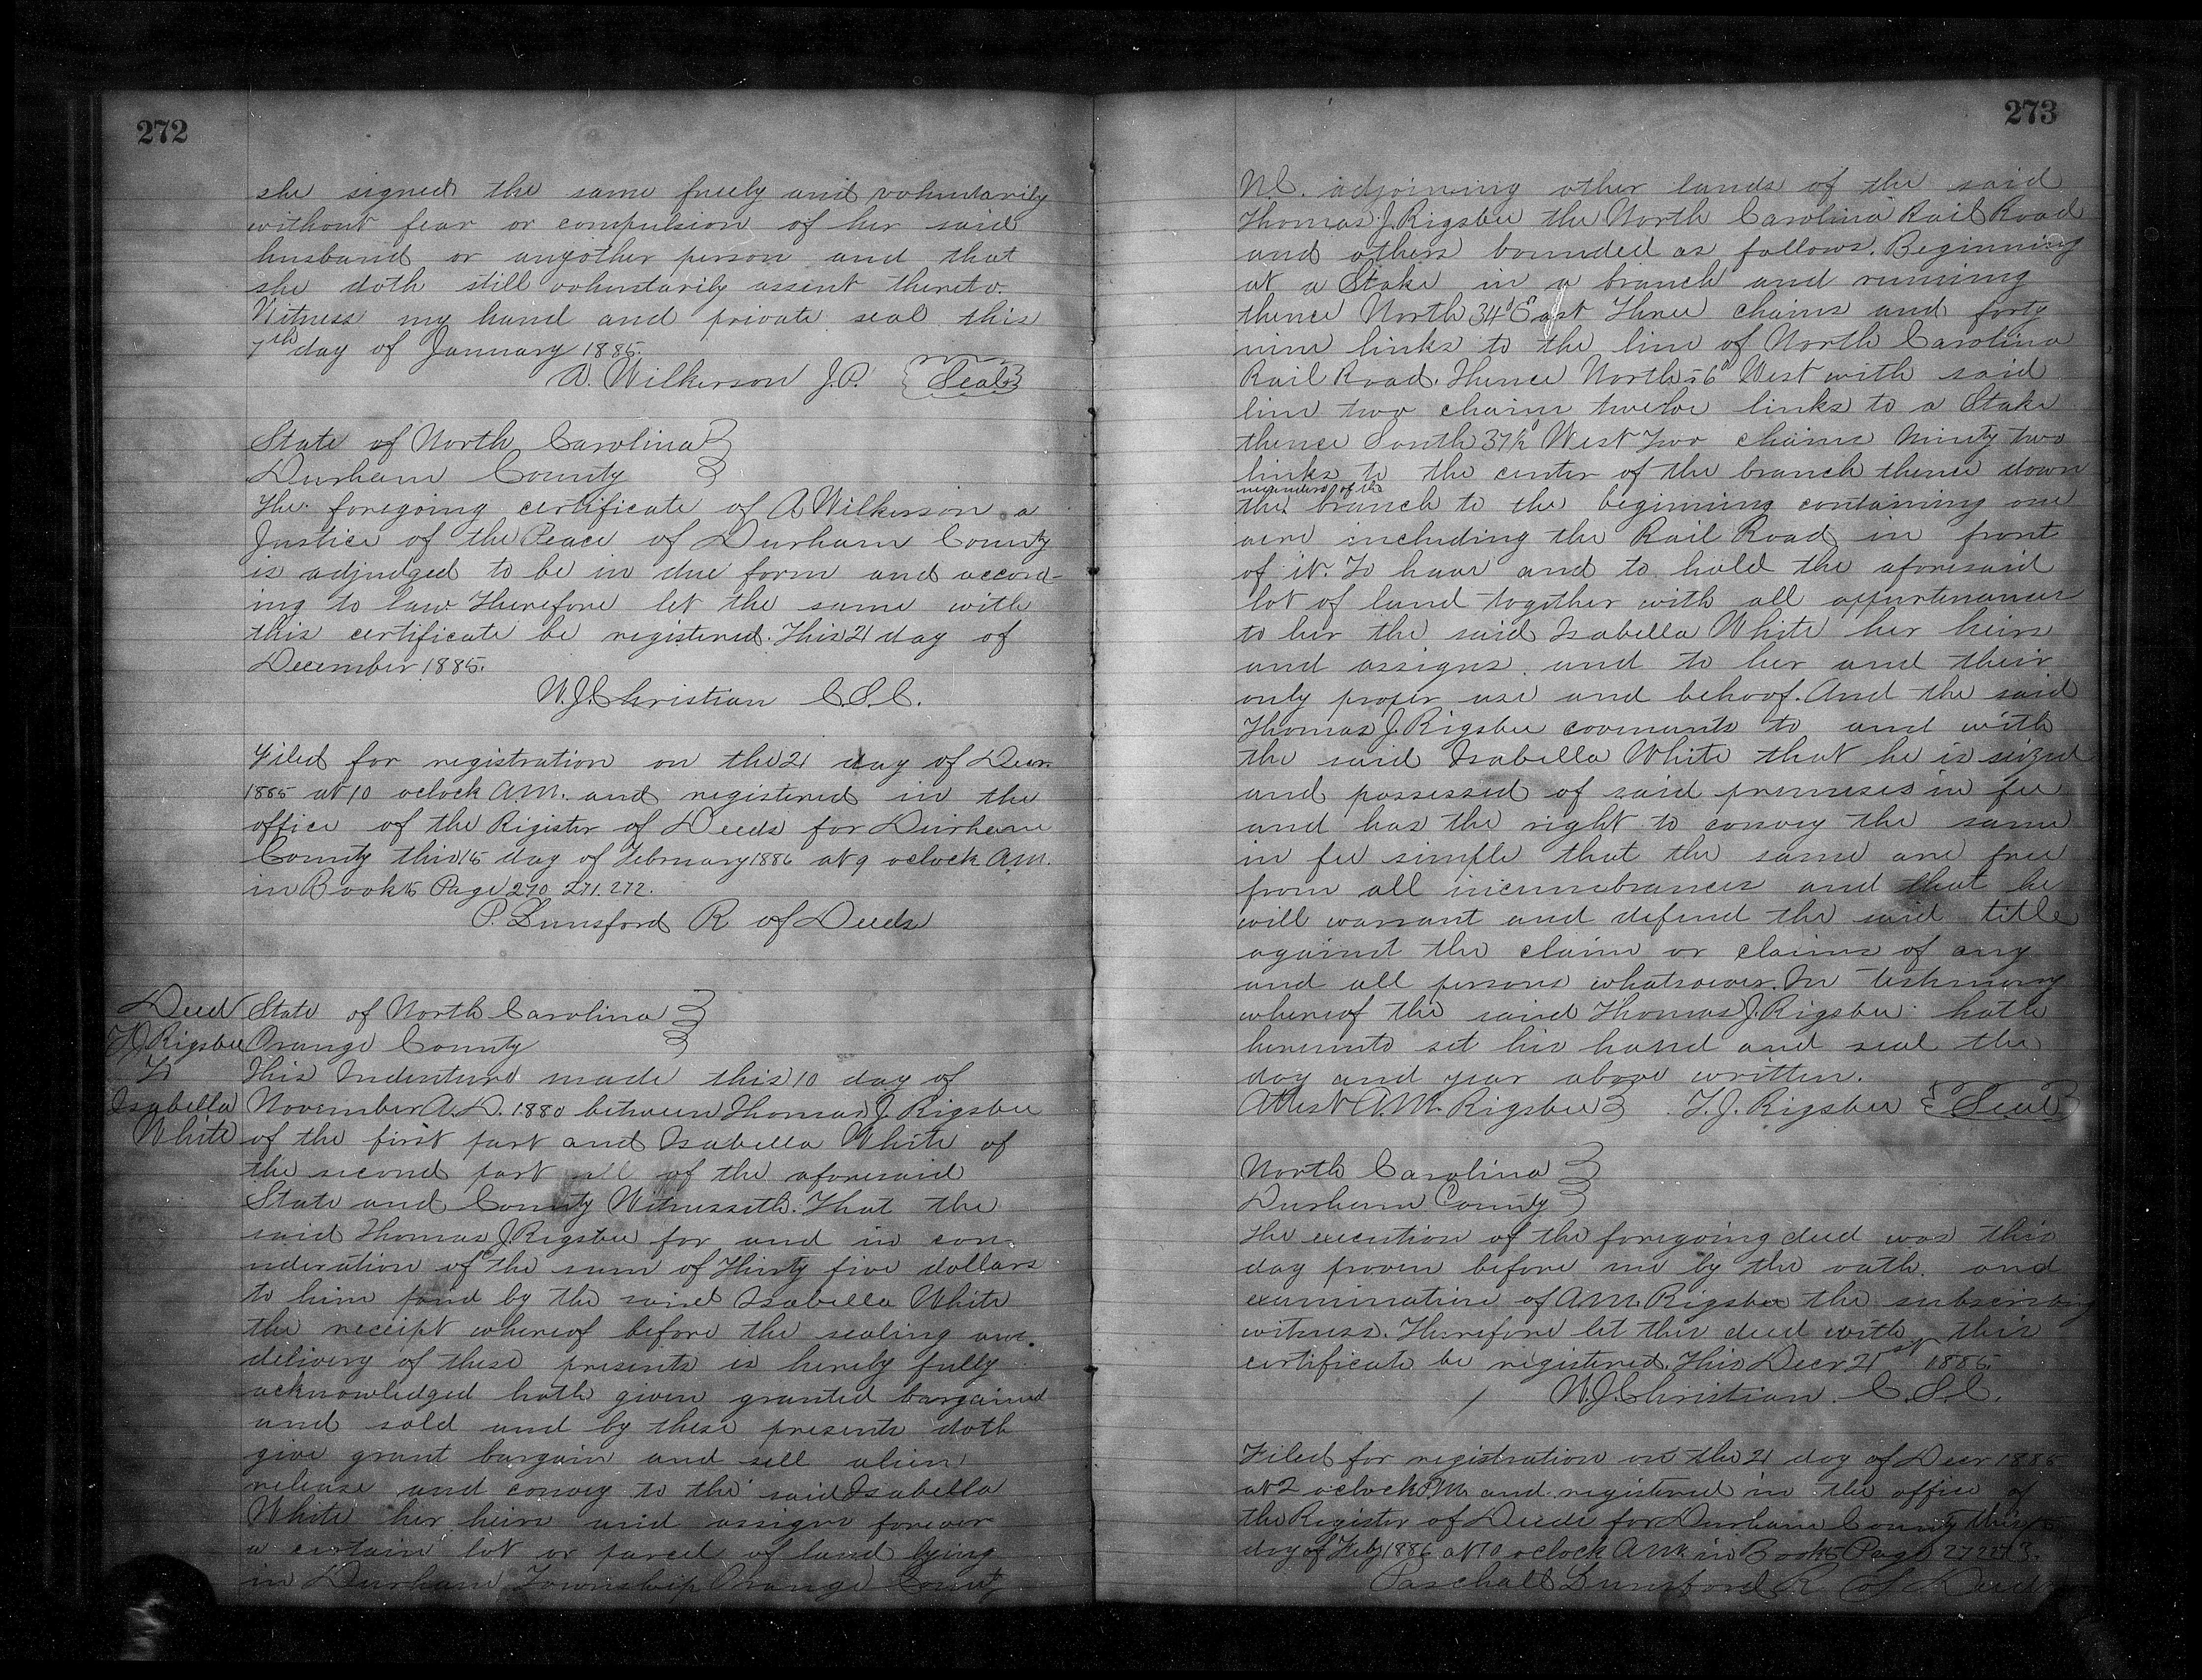 272
she signed the same freely and voluntarily
without fear or compulsion of her said
husband or anyother person and that
she doth still voluntarily assent thereto.
Witness my hand and private seal this
7th day of January 1885.
A. Wilkerson J.P. Seal
State of North Carolina
Durham County
The foregoing certificate of A Wilkerson a
Justice of the Peace of Durham County
is adjudged to be in due form and accord-
ing to law Therefore let the same with
this certificate be registered. This 21 day of
December 1885.
W.J. Christian C.S.C.
Filed for registration on the 21 day of Decr.
1885 at 10 oclock A.M. and registered in the
office of the Register of Deeds for Durham
County this 15 day of February 1886 at 9 oclock A.M.
in Book 5 Page 270, 271. 272.
P. Lunsford R of Deeds
Deed
T J Rigsbee
To
Isabella
White
State of North Carolina
Orange County
This Indenture made this 10 day of
November A.D. 1880 between Thomas J. Rigsbee
of the first part and Isabella White of
the second part all of the aforesaid
State and County Witnesseth. That the
said Thomas J Rigsbee for and in con-
sideration of the sum of Thirty five dollars
to him paid by the said Isabella White
the receipt whereof before the sealing and
delivery of these presents is hereby fully
acknowledged hath given granted bargained
and sold and by these presents doth
give grant bargain and sell alien
release and convey to the said Isabella
White her heirs and assigns forever
a certain lot or parcel of land lying
in Durham Township Orange County
273
N.C. adjoining other lands of the said
Thomas J. Rigsbee the North Carolina Rail Road
and others bounded as follows. Beginning
at a Stake in a branch and running
thence North 34° East Three chains and forty
nine links to the line of North Carolina
Rail Road. Thence North 56° West with said
line two chains twelve links to a Stake
thence South 37½° West Two chains Ninety two
links to the center of the branch thence down
meanders of the
the branch to the beginning containing one
acre including the Rail Road in front
of it. To have and to hold the aforesaid
lot of land together with all appurtenances
to her the said Isabella White her heirs
and assigns and to her and their
only proper use and behoof. And the said
Thomas J. Rigsbee covenants to and with
the said Isabella White that he is seized
and possessed of said premises in fee
and has the right to convey the same
in fee simple that the same are free
from all incumbrances and that he
will warrant and defend the said title
against the claim or claims of any
and all persons whatsoever. In testimony
whereof the said Thomas J. Rigsbee hath
hereunto set his hand and seal the
day and year above written.
Attest A.M. Rigsbee T. J. Rigsbee Seal
North Carolina
Durham County
The execution of the foregoing deed was this
day proven before me by the oath and
examination of A.M. Rigsbee the subscribing
witness. Therefore let this deed with this
certificate be registered. This Decr. 21st 1885.
W.J. Christian C.S.C.
Filed for registration on the 21 day of Decr 1885
at 2 oclock P.M. and registered in the office of
the Register of Deeds for Durham County this
day of Feby 1886 at 10 oclock A.M. in Book 5 Page 272 273.
Paschall Lunsford R of Deeds